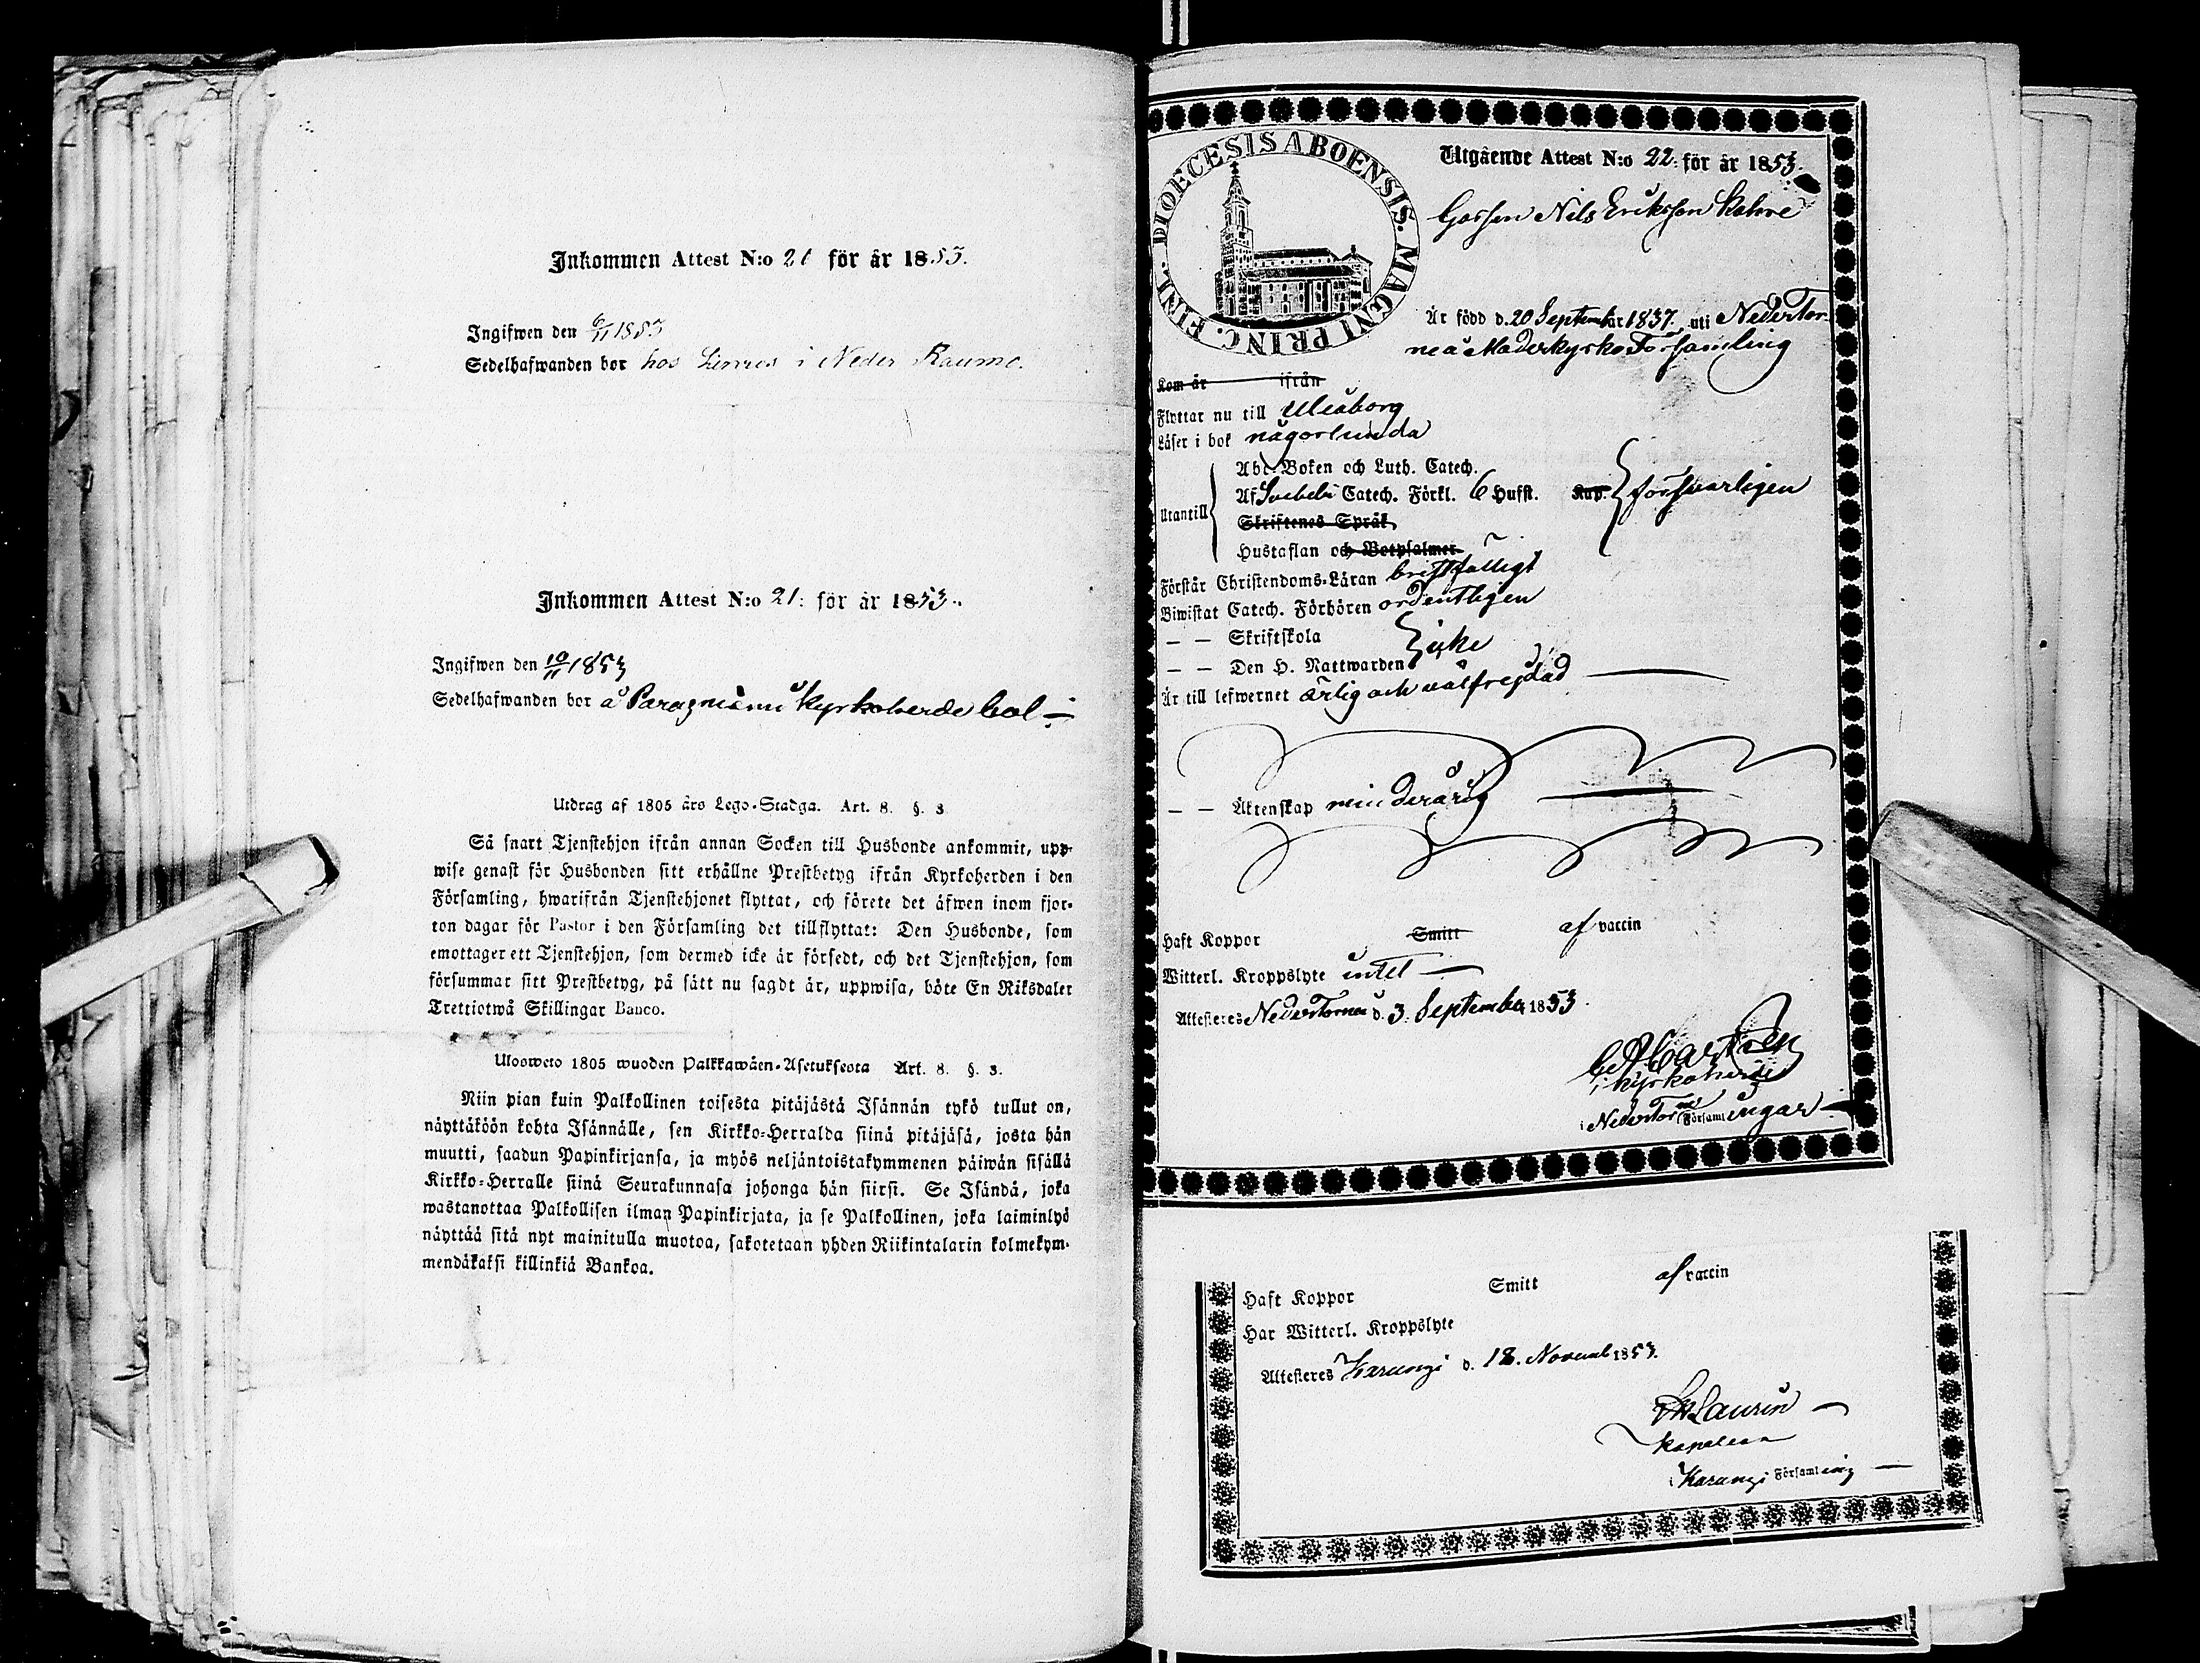 Inkommen Attest N:o 21 för år 1853.
Ingifwen den 6/11 1853
Sedelhafwanden bor hos i Neder Raumo.
Inkommen Attest N:o 21: för år 1853.
Ingifwen den 10/11 1853
Sedelhafwanden bor å kyrkoherde bol
Utdrag af 1805 års Lego-Stadga. Art. 8. §. 3
Så snart Tjenstehjon ifrån annan Socken till Husbonde ankommit, upp-
wise genast för Husbonden sitt erhållne Prestbetyg ifrån Kyrkoherden i den
Församling, hwarifrån Tjenstehjonet flyttat, och förete det äfwen inom fjor-
ton dagar för Pastor i den Församling det tillflyttat: Den Husbonde, som
emottager ett Tjenstehjon, som dermed icke är försedt, och det Tjenstehjon, som
försummar sitt Prestbetyg, på sätt nu sagdt är, uppwisa, böte En Riksdaler
Trettiotwå Skillingar Banco.
Ulosweto 1805 wuoden Palkkawäen-Asetuksesta Art. 8. §. 3.
Niin pian kuin Palkollinen toisesta pitäjästä Isännän tykö tullut on,
näyttäköön kohta Isännälle, sen Kirkko-Herralda siinä pitäjäsä, josta hän
muutti, saadun Papinkirjansa, ja myös neljäntoistakymmenen päiwän sisällä
Kirkko-Herralle siinä Seurakunnasa johonga hän siirsi. Se Isändä, joka
wastanottaa Palkollisen ilman Papinkirjata, ja se Palkollinen, joka laiminlyö
näyttää sitä nyt mainitulla muotoa, sakotetaan yhden Riikintalarin kolmekym-
mendäkaksi killinkiä Bankoa.
DIOECESIS ABOENSIS. MAGNI PRINC. FINL.
Utgående Attest N:o 22: för år 1853.
Gossen Nils Eriksson
Är född d. 20 September 1837. uti NederTor-
neå Moderkyrko Församling
Kom år ifrån
Flyttar nu till Uleåborg
Läser i bok någorlunda
Utantill
Abc-Boken och Luth. Catech.
Af Svebelii Catech. Förkl. 6 Hufst. Kap. försvarligen
Skriftenes Språk
Hustaflan och Botpsalmer
Förstår Christendoms-Läran bristfälligt
Biwistat Catech. Förhören ordentligen
— — Skriftskola
— — Den H. Nattwarden icke
Är till lefwernet ärlig och välfrejdad
— — Äktenskap minderårig
Haft Koppor Smitt af vaccin
Witterl. Kroppslyte intet
Attesteres NederTorneå d. 3. September 1853.
kyrkoherde
i NederTorneå Församlingar
Haft Koppor Smitt af vaccin
Har Witterl. Kroppslyte
Attesteres Karungi d. 18. Novemb 1853.
Laurin
Kapellan
i Karungi Församling